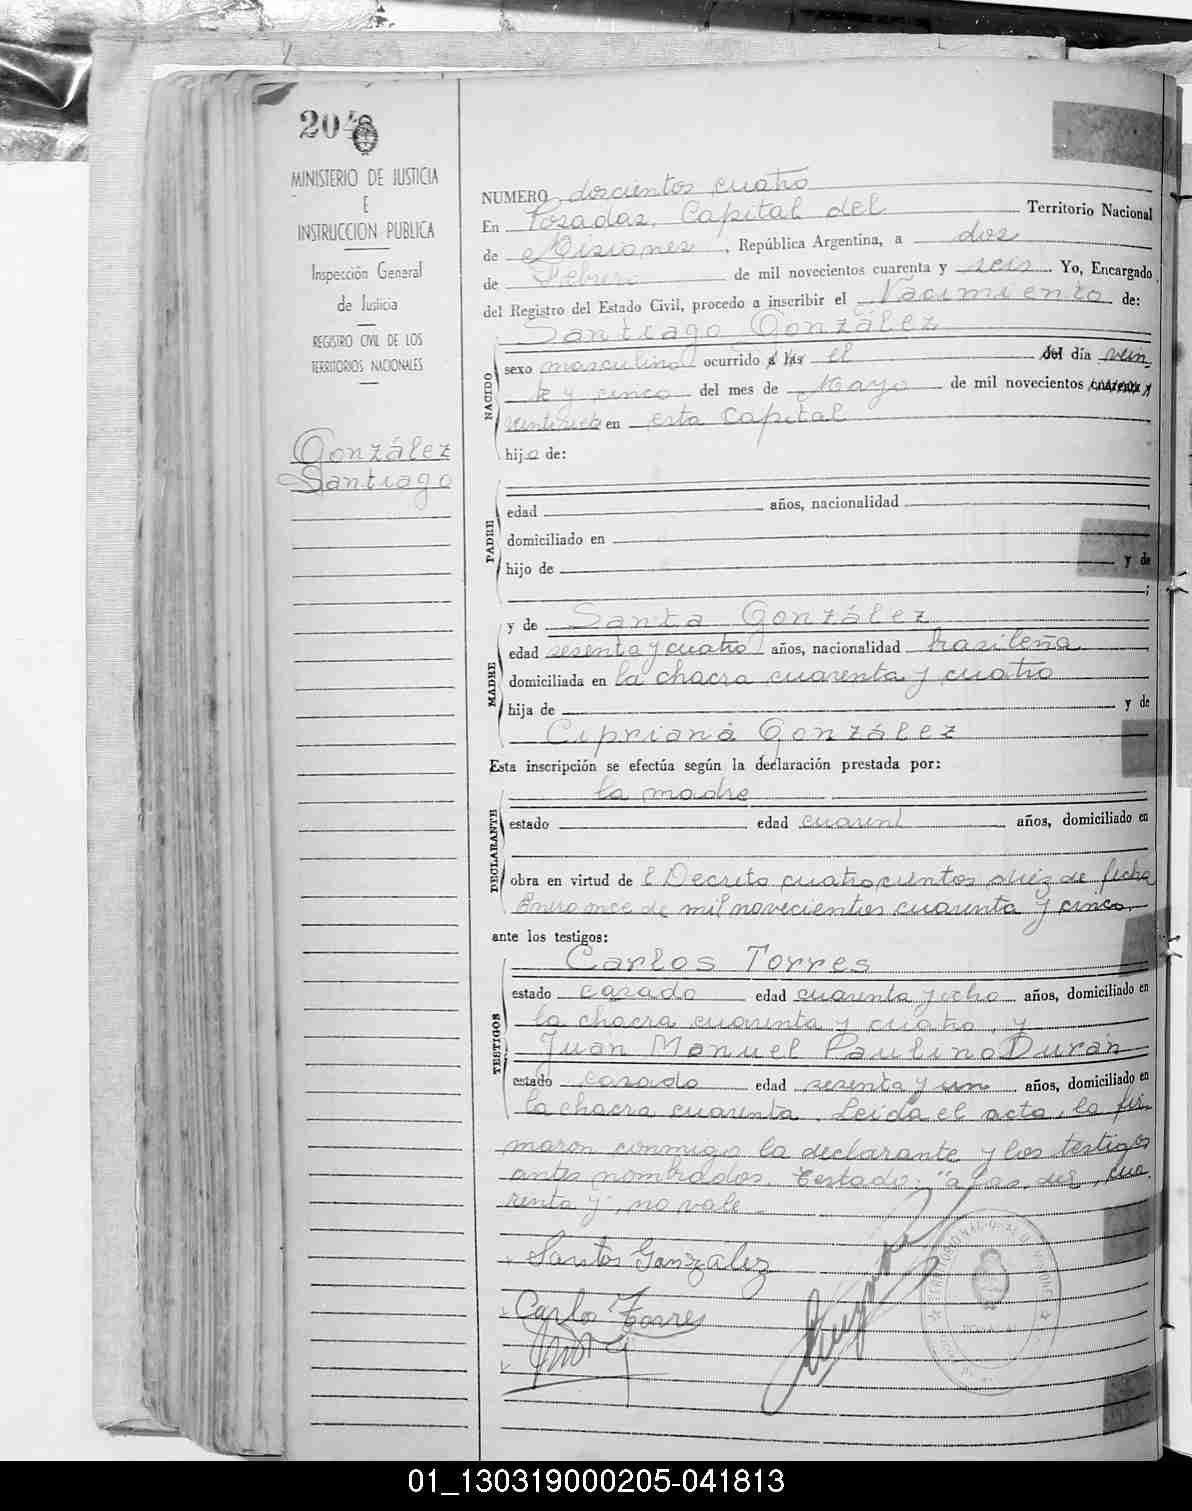 204
MINISTERIO DE JUSTICIA
E
INSTRUCCION PUBLICA
Inspección General
de Justicia
REGISTRO CIVIL DE LOS
TERRITORIOS NACIONALES
González
Santiago
NUMERO doscientos cuatro
En Posadas, Capital del Territorio Nacional
de Misiones, República Argentina, a dos
de Febrero de mil novecientos cuarenta y seis Yo, Encargado
del Registro del Estado Civil, procedo a inscribir el Nacimiento de:
Santiago González
NACIDO
sexo masculino ocurrido a las el del día vein
te y cinco del mes de Mayo de mil novecientos cuarenta y
en esta Capital
hijo de:
PADRE
edad años, nacionalidad
domiciliado en
hijo de y de
;
MADRE
y de Santa González
edad sesenta y cuatro años, nacionalidad brasileña
domiciliada en la chacra cuarenta y cuatro
hija de y de
Cipriana González
Esta inscripción se efectúa según la declaración prestada por:
la madre
DECLARANTE
estado edad cuarent años, domiciliado en
obra en virtud de l Decreto cuatrocientos diez de fecha
Enero once de mil novecientos cuarenta y cinco.
ante los testigos:
TESTIGOS
Carlos Torres
estado casado edad cuarenta y ocho años, domiciliado en
la chacra cuarenta y cuatro, y
Juan Manuel Paulino Durán
estado casado edad sesenta y un años, domiciliado en
la chacra cuarenta. Leída el acta, la fir
maron conmigo la declarante y los testigos
antes nombrados. Testado: "a las, del, cua
renta y", no vale.
Santos González
Carlo Torres
01_130319000205-041813